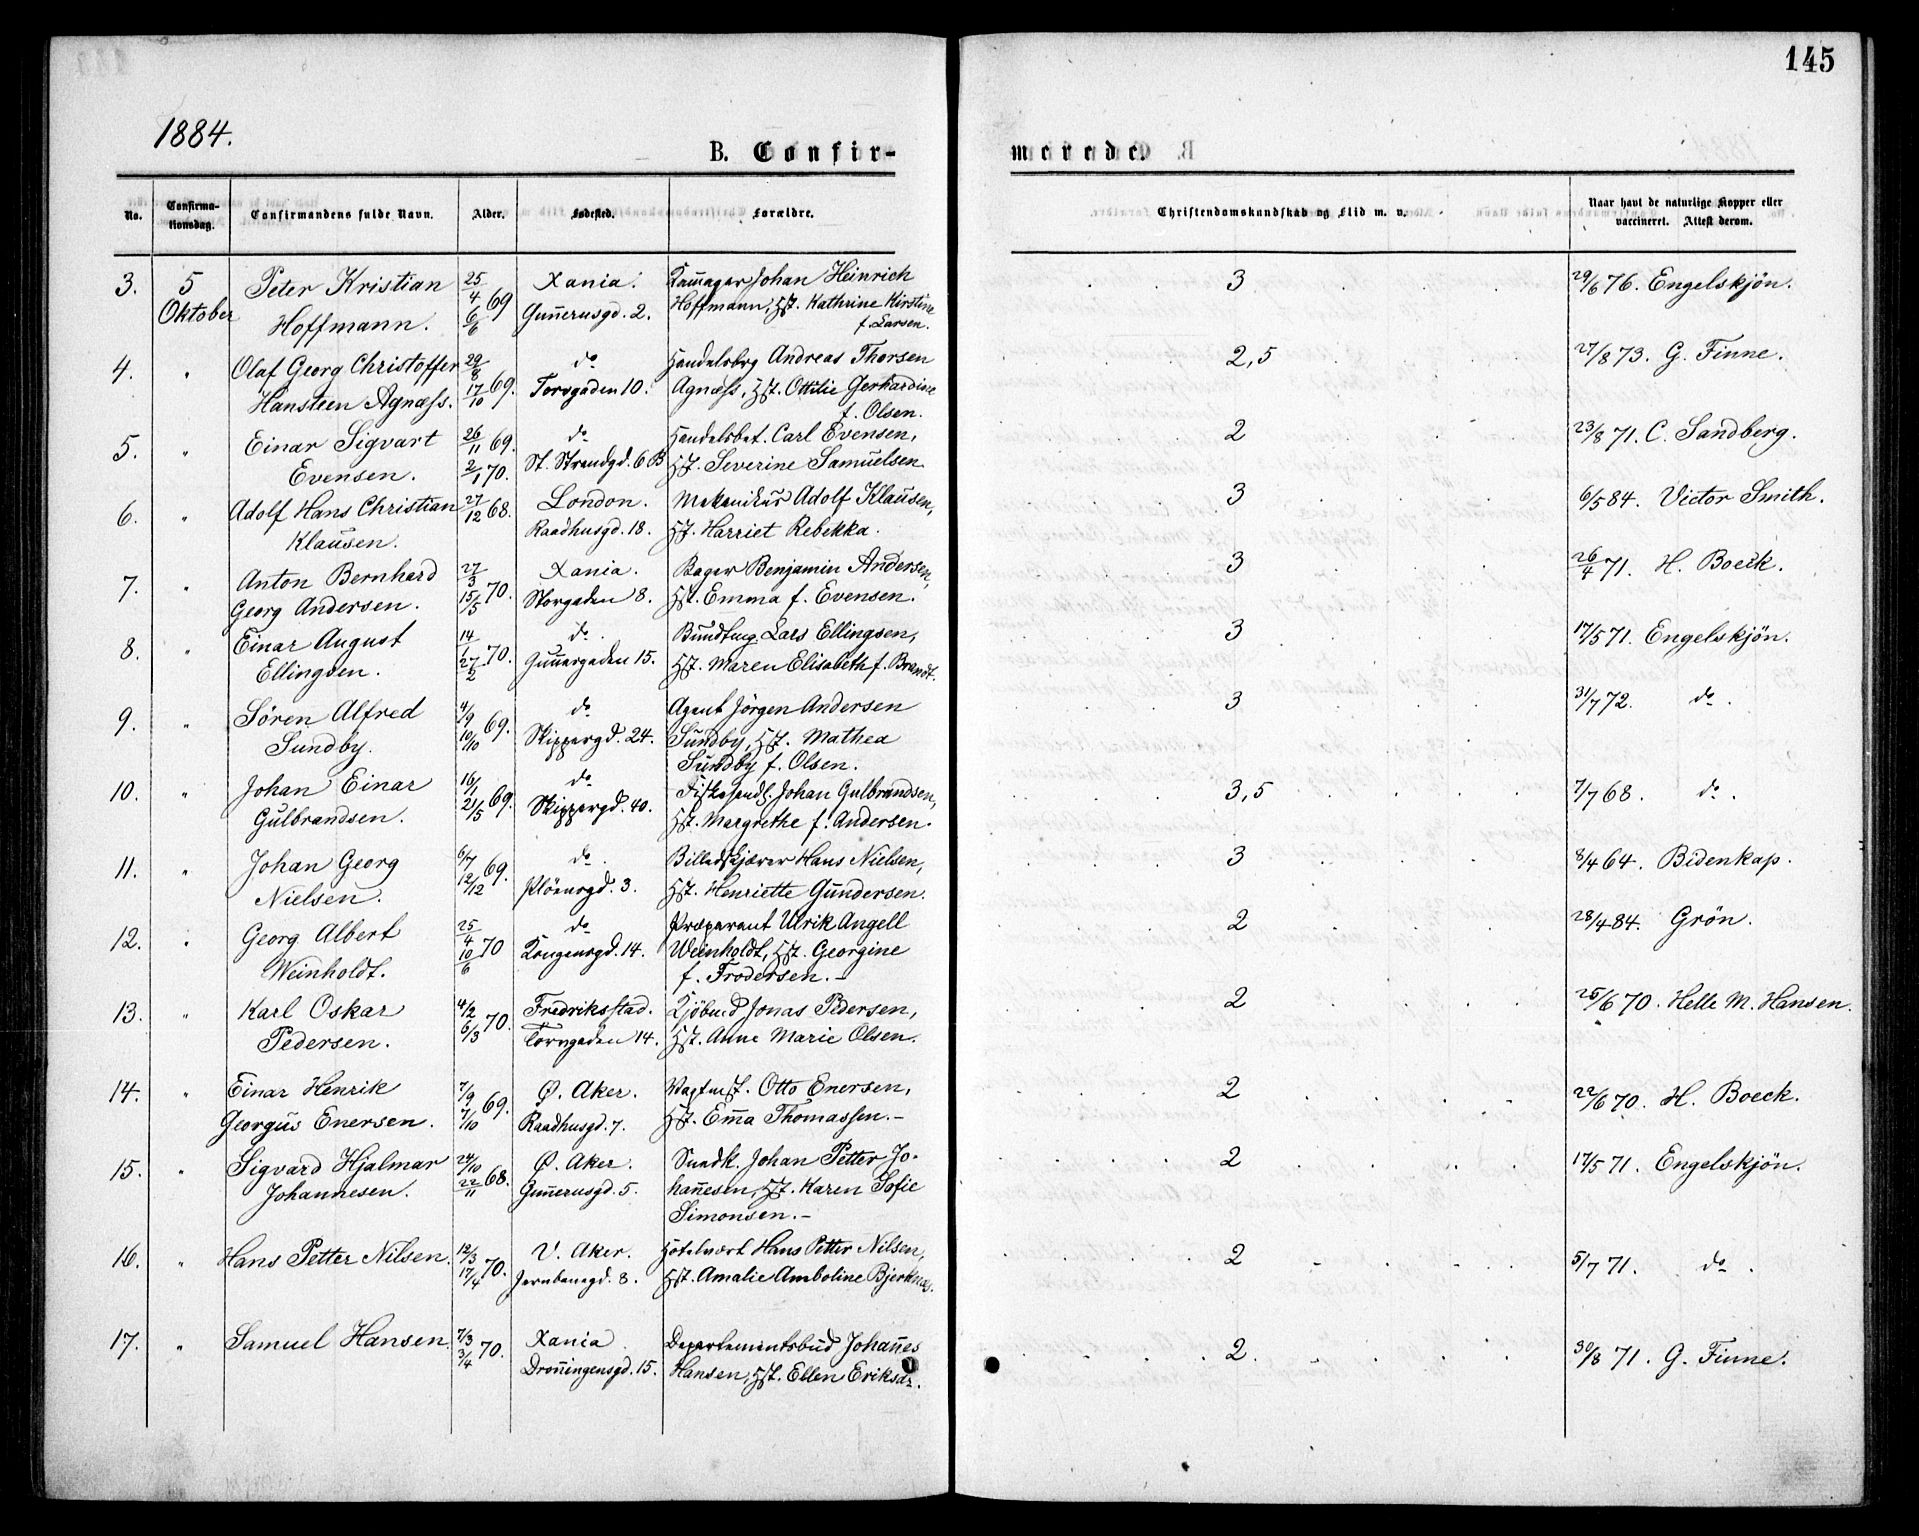 145
1884.
B. Confir- merede.
No. Confirma-tionsdag. Confirmandens fulde Navn. Alder. Fødested. Forældre. Christendomskundskab og Flid m. v. Naar havt de naturlige Kopper eller vaccineret. Attest derom.
3. 5 Peter Kristian 25/4 69 Xania. Johan Heinrich 3 29/6 76. Engelskjön.
Oktober Hoffmann. 6/6 Gunnerusgd. 2. Hoffmann, Hst. Kathrine Kirstine
f. Larsen.
4. " Olaf Georg Christoffer 29/8 69. do Handelsborg Andreas Thorsen 2,5 27/8 73. G. Finne.
Hansteen Agnæss. 17/10 Torvgaden 10. Agnæss, Hst. Ottilie Gerhardine
f. Olsen.
5. " Einar Sigvart 26/11 69. do Handelsbet. Carl Evensen, 2 23/8 71. C. Sandberg.
Evensen. 2/1 70. St. Strandgd. 6 B Hst. Severine Samuelsen
6. " Adolf Hans Christian 27/12 68. London. Mekanikus Adolf Klausen, 3 6/5 84. Victor Smith.
Klausen. Raadhusgd. 18. Hst. Harriet Rebekka.
7. " Anton Bernhard 27/3 70. Xania. Bager Benjamin Andersen, 3 26/4 71. H. Boeck.
Georg Andersen. 15/5 Storgaden 8. Hst. Emma f. Evensen.
8. " Einar August 14/1 70. do. Lars Ellingsen, 3 17/5 71. Engelskjön.
Ellingsen. 27/2 15. Hst. Maren Elisabeth f. Brandt.
9. " Sören Alfred 4/9 69. do Agent Jörgen Andersen 3 31/7 72. do.
Sundby. 10/10 Skippergd. 24. Sundby, Hst. Mathea
Sundby f. Olsen.
10. " Johan Einar 16/1 69. do Johan Gulbrandsen, 3,5 7/7 68. do.
Gulbrandsen. 21/5 Skippergd. 40. Hst. Margrethe f. Andersen.
11. " Johan Georg 6/7 69. do. Billedskjærer Hans Nielsen, 3 8/4 64. Bidenkap.
Nielsen. 12/12 Plöensgd. 3. Hst. Henriette Gundersen.
12. " Georg Albert 25/4 70 do Præparant Ulrik Angell 2 28/4 84. Grön.
Weinholdt. 10/6 Kongensgd. 14. Weinholdt, Hst. Georgine
f. Frodersen.-
13. " Karl Oskar 4/2 70. Fredriksstad. Kjöbmd Jonas Pedersen, 2 25/6 70. Helle M. Hansen.
Pedersen. 6/3 Torvgaden 14. Hst. Anne Marie Olsen.
14. " Einar Henrik 7/9 69. Ø. Aker. Vagtmst. Otto Enersen, 2 22/6 70. H. Boeck.
Georgus Enersen. 7/10 Raadhusgd. 7. Hst. Emma Thomassen.-
15. " Sigvard Hjalmar 24/10 68. Ø. Aker. Johan Petter Jo- 2 17/5 71. Engelskjön.
Johannesen. 22/11 Gunnerusgd. 5. hannesen, Hst. Karen Sofie
Simonsen.-
16. " Hans Petter Nilsen. 12/3 70. V. Aker. Hotelvært Hans Petter Nilsen, 2 5/7 71. do.
17/4 Jernbanegd. 8. Hst. Amalie Amboline Bjerknæs.
17. " Samuel Hansen. 7/3 70. Xania Departementsbud Johannes 2. 30/8 71. G. Finne.
3/4 Dronningensgd. 15. Hansen, Hst. Ellen Eriksdr.